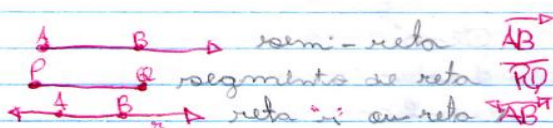 A B semi-reta AB
P Q segmento de reta PQ
A B r reta "r" ou reta AB